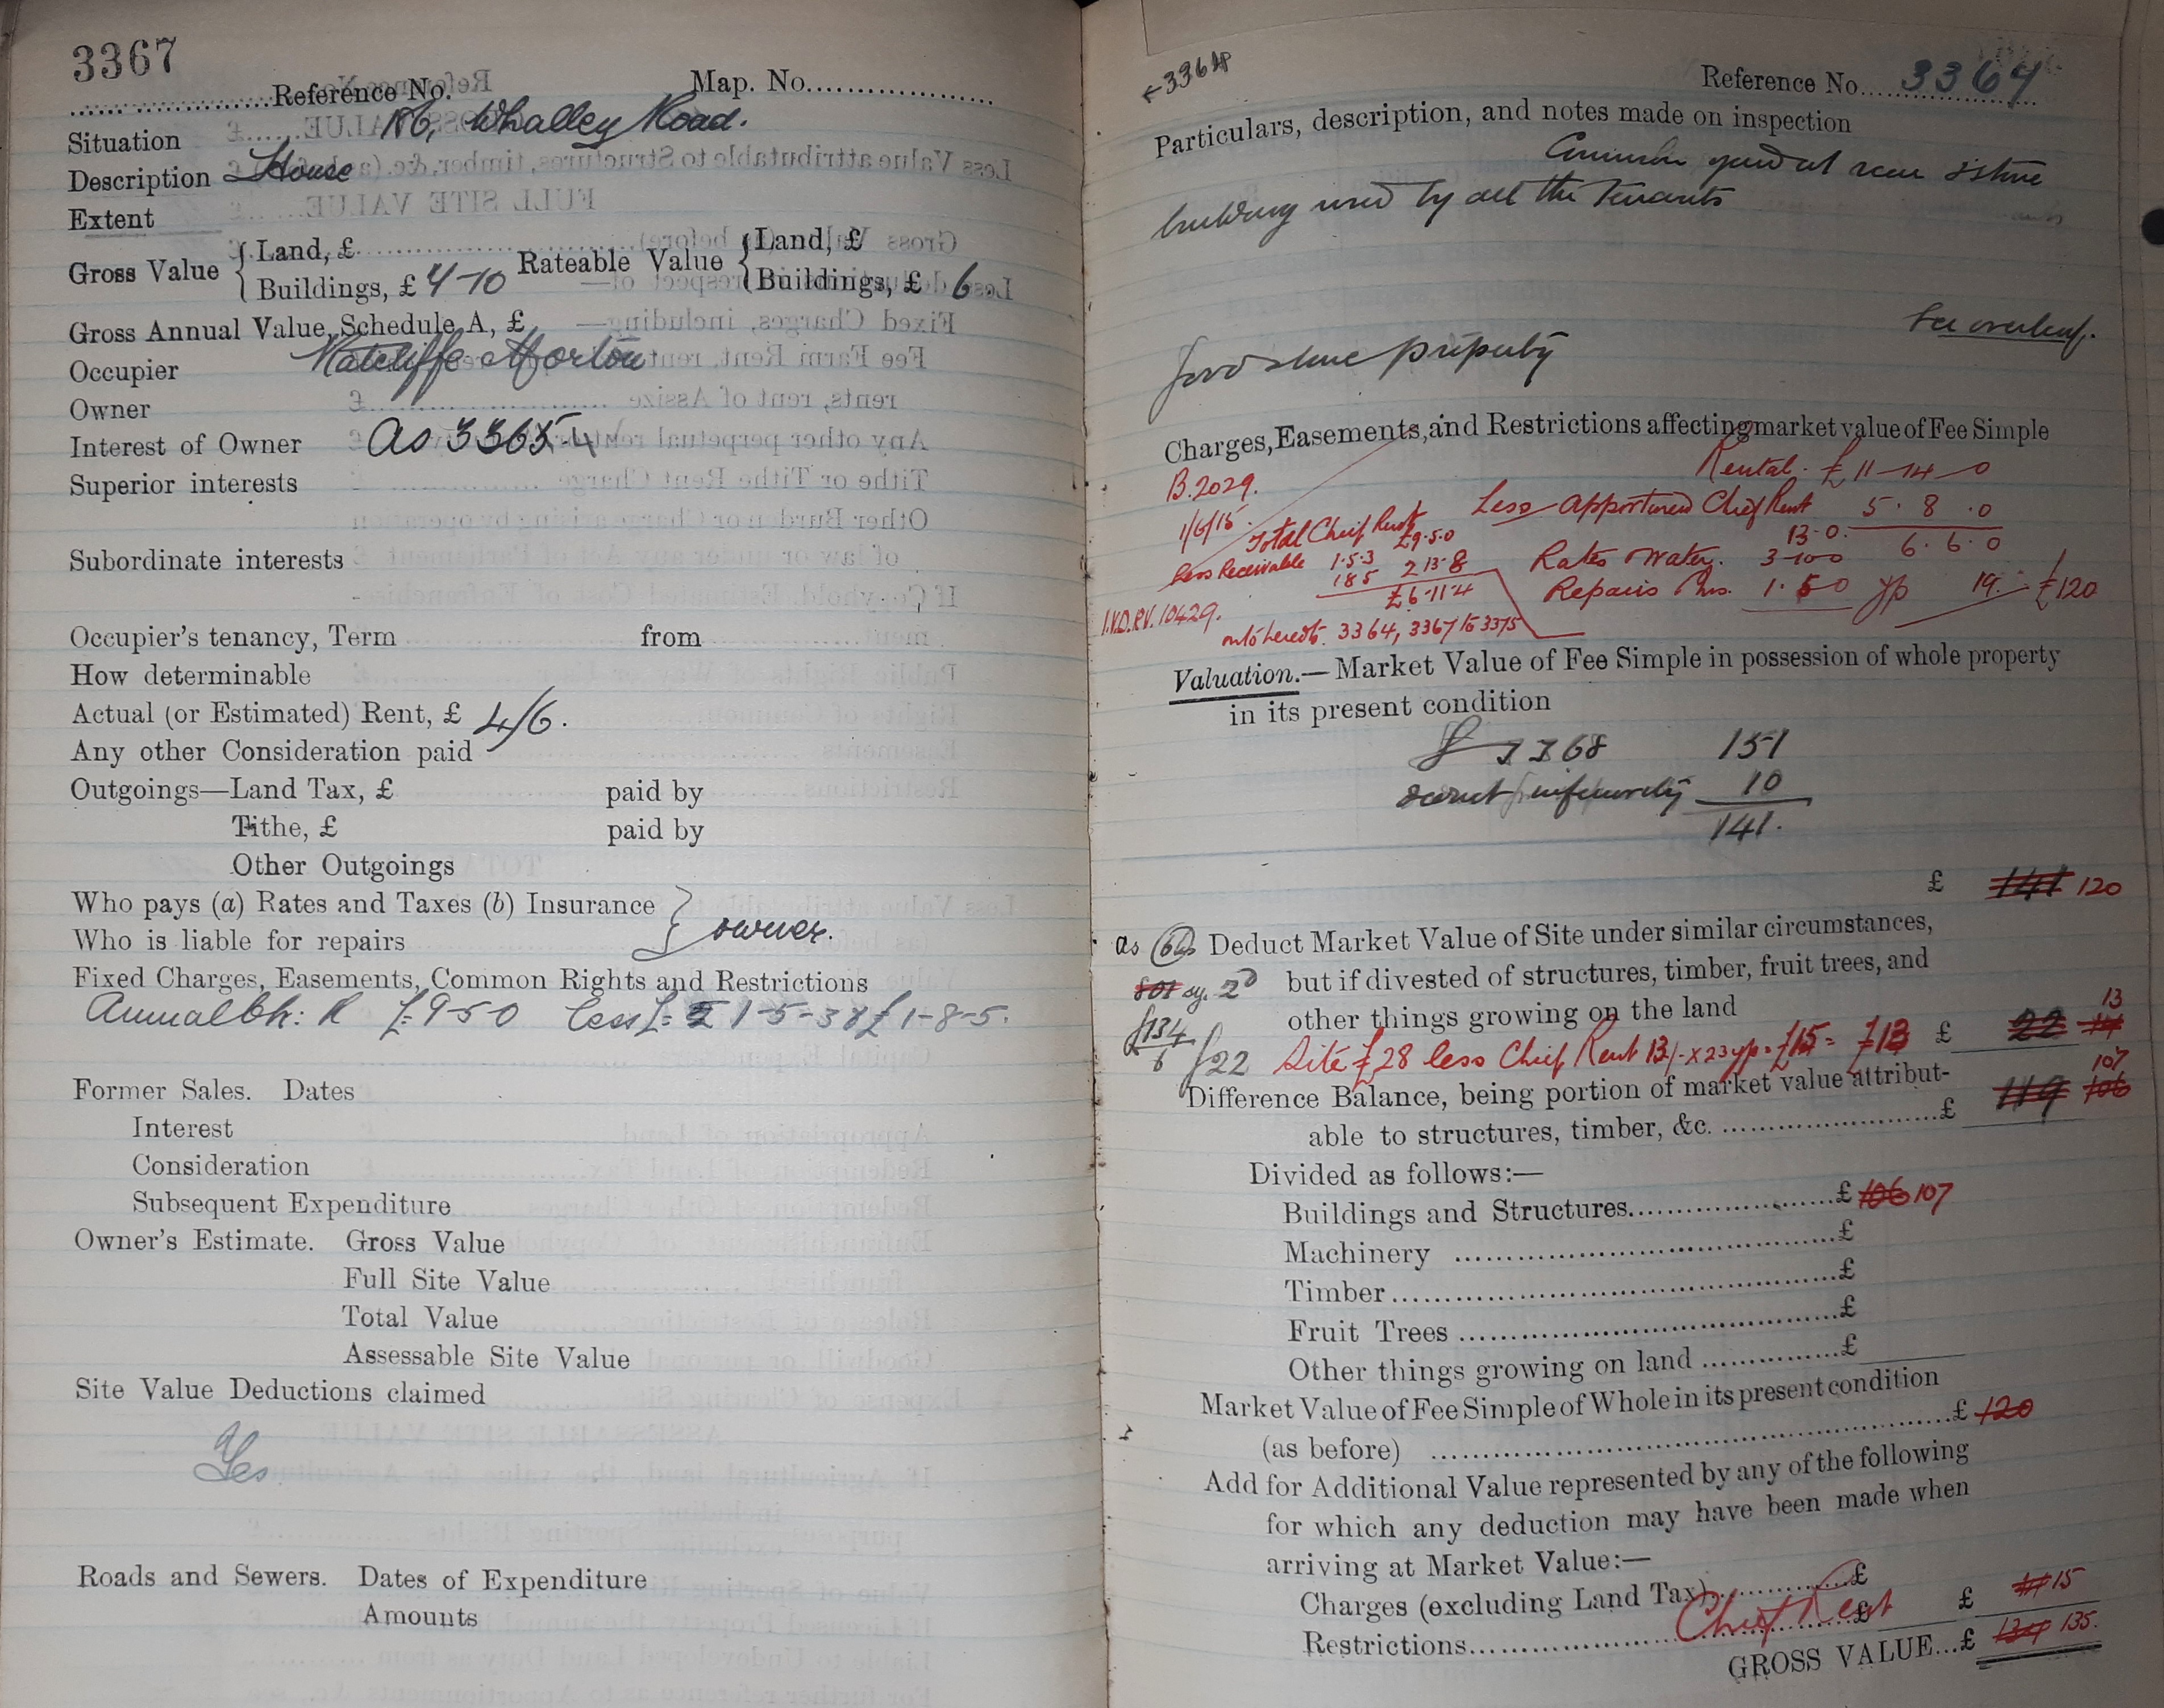 3367
Reference No. Map. No.
Situation 186, Whalley Road.
Description House
Extent
Gross Value { Land, £ Rateable Value { Land, £
Buildings, £ 4-10 Buildings, £ 6.
Gross Annual Value, Schedule A, £
Occupier Ratcliffe Morton
Owner
Interest of Owner As 3365-4
Superior interests
Subordinate interests
Occupier's tenancy, Term from
How determinable
Actual (or Estimated) Rent, £ 4/6.
Any other Consideration paid
Outgoings—Land Tax, £ paid by
Tithe, £ paid by
Other Outgoings
Who pays (a) Rates and Taxes (b) Insurance }
Who is liable for repairs } owner.
Fixed Charges, Easements, Common Rights and Restrictions
Annual Ch: R £9-5-0 less £ 1-5-3 & £1-8-5.
Former Sales. Dates
Interest
Consideration
Subsequent Expenditure
Owner's Estimate. Gross Value
Full Site Value
Total Value
Assessable Site Value
Site Value Deductions claimed
Yes
Roads and Sewers. Dates of Expenditure
Amounts
←3364
Reference No. 3367
Particulars, description, and notes made on inspection
Common yard at rear & stone
building used by all the tenants
See overleaf.
Good stone property
Charges, Easements, and Restrictions affecting market value of Fee Simple
B.2029. Rental. £11-14-0
1/6/15. Total Chief Rent £9.5.0 Less Apportioned Chief Rent 13.0. 5.8.0
Less Receivable 1.5.3 Rates & Water. 3-10-0 6.6.0
1.8.5 2 13.8 Repairs & Ins. 1.5.0 yp 19. £120
£6-11-4
I.V.D.R.V. 10429. 3364, 3367 to 3375
Valuation.—Market Value of Fee Simple in possession of whole property
in its present condition
3368 151
inferiority 10
141.
£ 141 120
as Deduct Market Value of Site under similar circumstances,
801 sy. 2d but if divested of structures, timber, fruit trees, and
£134 other things growing on the land 13
6 £22 Site £28 less Chief Rent 13/- x 23 yp = £15 = £13 £ 22 14
Difference Balance, being portion of market value attribut- 107
able to structures, timber, &c. £ 119 106
Divided as follows:—
Buildings and Structures £ 106 107
Machinery £
Timber £
Fruit Trees £
Other things growing on land £
Market Value of Fee Simple of Whole in its present condition
(as before) £ 120
Add for Additional Value represented by any of the following
for which any deduction may have been made when
arriving at Market Value:—
Charges (excluding Land Tax) £ Chief Rent £ 15
Restrictions £
GROSS VALUE...£ 135.